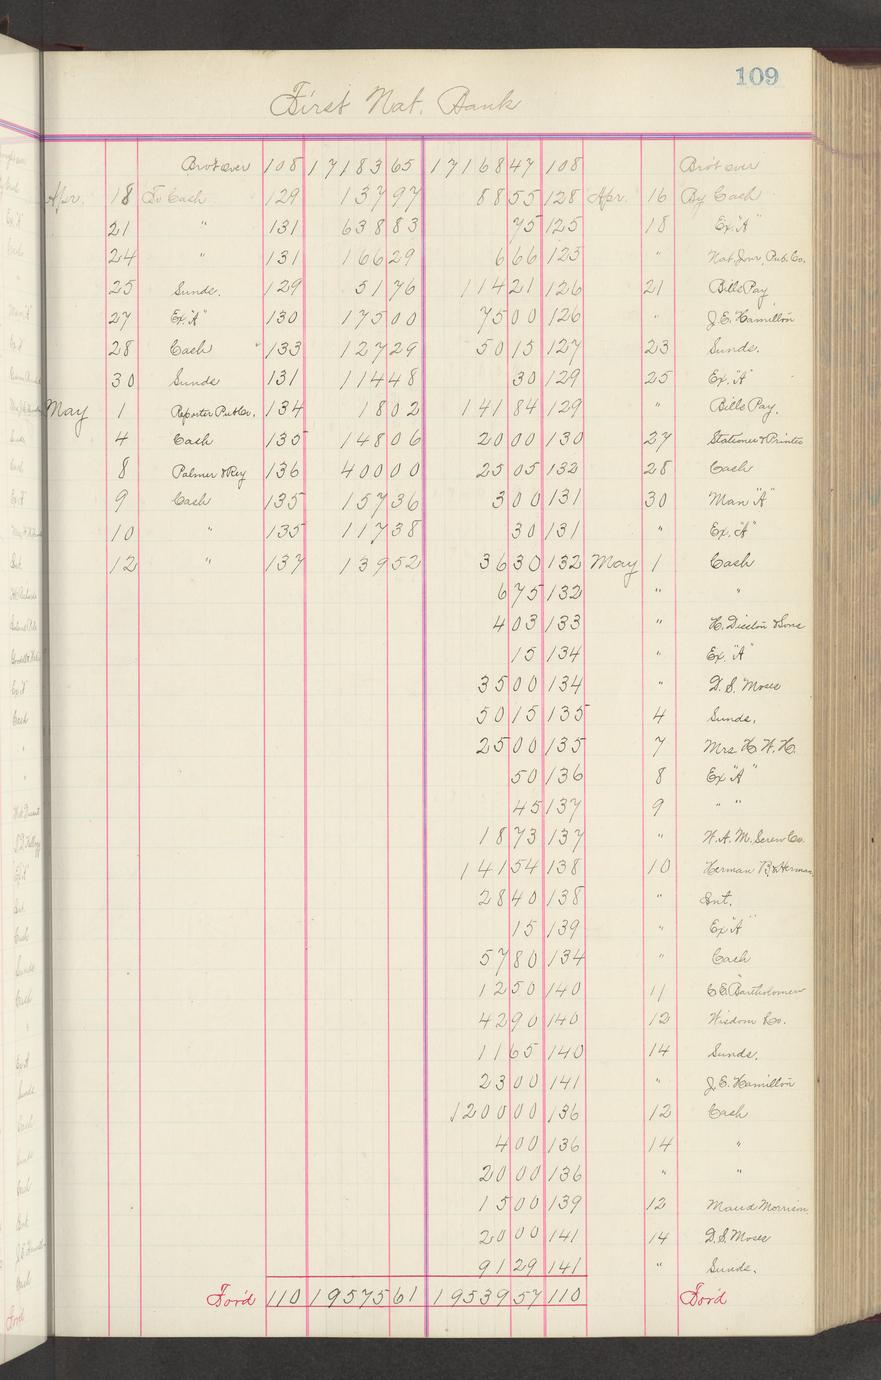 109
First Nat. Bank
Brot over 108 17183 65 17168 47 108 Brot over
Apr. 18 To Cash 129 137 97 88 55 128 Apr. 16 By Cash
21 " 131 638 83 75 125 18 Ex. "A"
24 " 131 166 29 6 66 125 " Nat. Jour. Pub. Co.
25 Sunds. 129 51 76 114 21 126 21 Bills Pay
27 Ex. "A" 130 175 00 75 00 126 " J. E. Hamilton
28 Cash 133 127 29 50 15 127 23 Sunds.
30 Sunds 131 114 48 30 129 25 Ex. "A"
May 1 Reporter Pub Co. 134 18 02 141 84 129 " Bills Pay.
4 Cash 135 148 06 20 00 130 27 Stationer & Printer
8 Palmer & Rey 136 400 00 25 05 132 28 Cash
9 Cash 135 157 36 3 00 131 30 Man "A"
10 " 135 117 38 30 131 " Ex. "A"
12 " 137 139 52 36 30 132 May 1 Cash
6 75 132 " "
4 03 133 " H. Disston & Sons
15 134 " Ex. "A"
35 00 134 " D. S. Moses
50 15 135 4 Sunds.
25 00 135 7 Mrs. H. W. H.
50 136 8 Ex "A"
45 137 9 " "
18 73 137 " W. A. M. Screw Co.
141 54 138 10 Herman B. & Herman
28 40 138 " Int.
15 139 " Ex "A"
57 80 134 " Cash
12 50 140 11 C. E. Bartholomew
42 90 140 12 Wisdom Co.
11 65 140 14 Sunds.
23 00 141 " J. E. Hamilton
1200 00 136 12 Cash
4 00 136 14 "
20 00 136 " "
15 00 139 12 Maud Morrison
20 00 141 14 D. S. Moses
91 29 141 " Sunds.
For'd 110 19575 61 19539 57 110 For'd